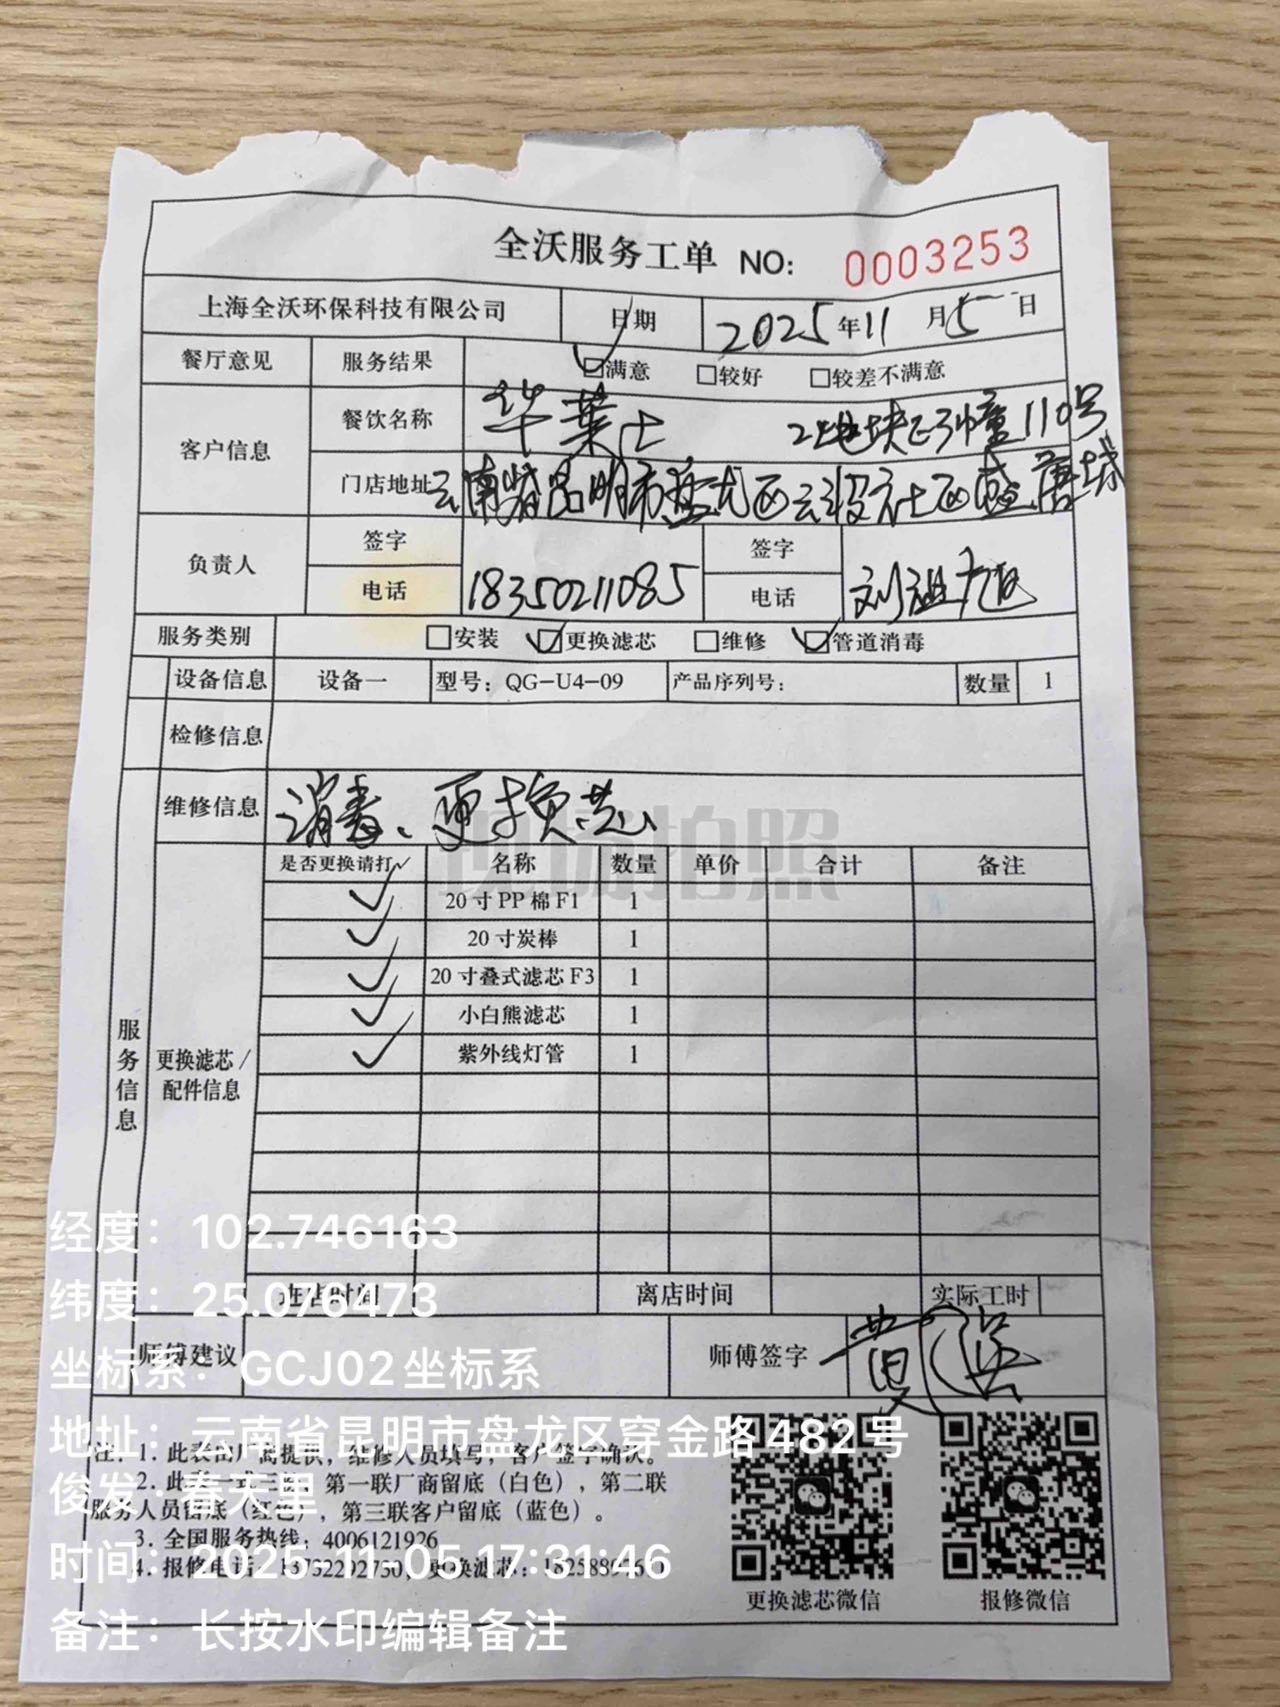 全沃服务工单 NO: 0003253
上海全沃环保科技有限公司 日期 2025年11月5日
餐厅意见 服务结果 ☑满意 □较好 □较差不满意
客户信息 餐饮名称 华莱士 110号
门店地址 云南省昆明市盘龙区
负责人 签字 签字
电话 18350211085 电话 刘祖旭
服务类别 □安装 ☑更换滤芯 □维修 ☑管道消毒
设备信息 设备一 型号:QG-U4-09 产品序列号: 数量 1
检修信息
维修信息 消毒、更换芯
现场拍照
服务信息
更换滤芯/配件信息
是否更换请打✓ 名称 数量 单价 合计 备注
✓ 20寸PP棉F1 1
✓ 20寸炭棒 1
✓ 20寸叠式滤芯F3 1
✓ 小白熊滤芯 1
✓ 紫外线灯管 1
进店时间 离店时间 实际工时
师傅建议 师傅签字 黄
注:1. 此表由厂商提供,维修人员填写,客户签字确认。
2. 此表一式三联,第一联厂商留底(白色),第二联
服务人员留底(红色),第三联客户留底(蓝色)。
3. 全国服务热线:4006121926
4. 报修电话: 更换滤芯:
更换滤芯微信 报修微信
经度:102.746163
纬度:25.076473
坐标系:GCJ02坐标系
地址:云南省昆明市盘龙区穿金路482号
俊发·春天里
时间:2025-11-05 17:31:46
备注:长按水印编辑备注